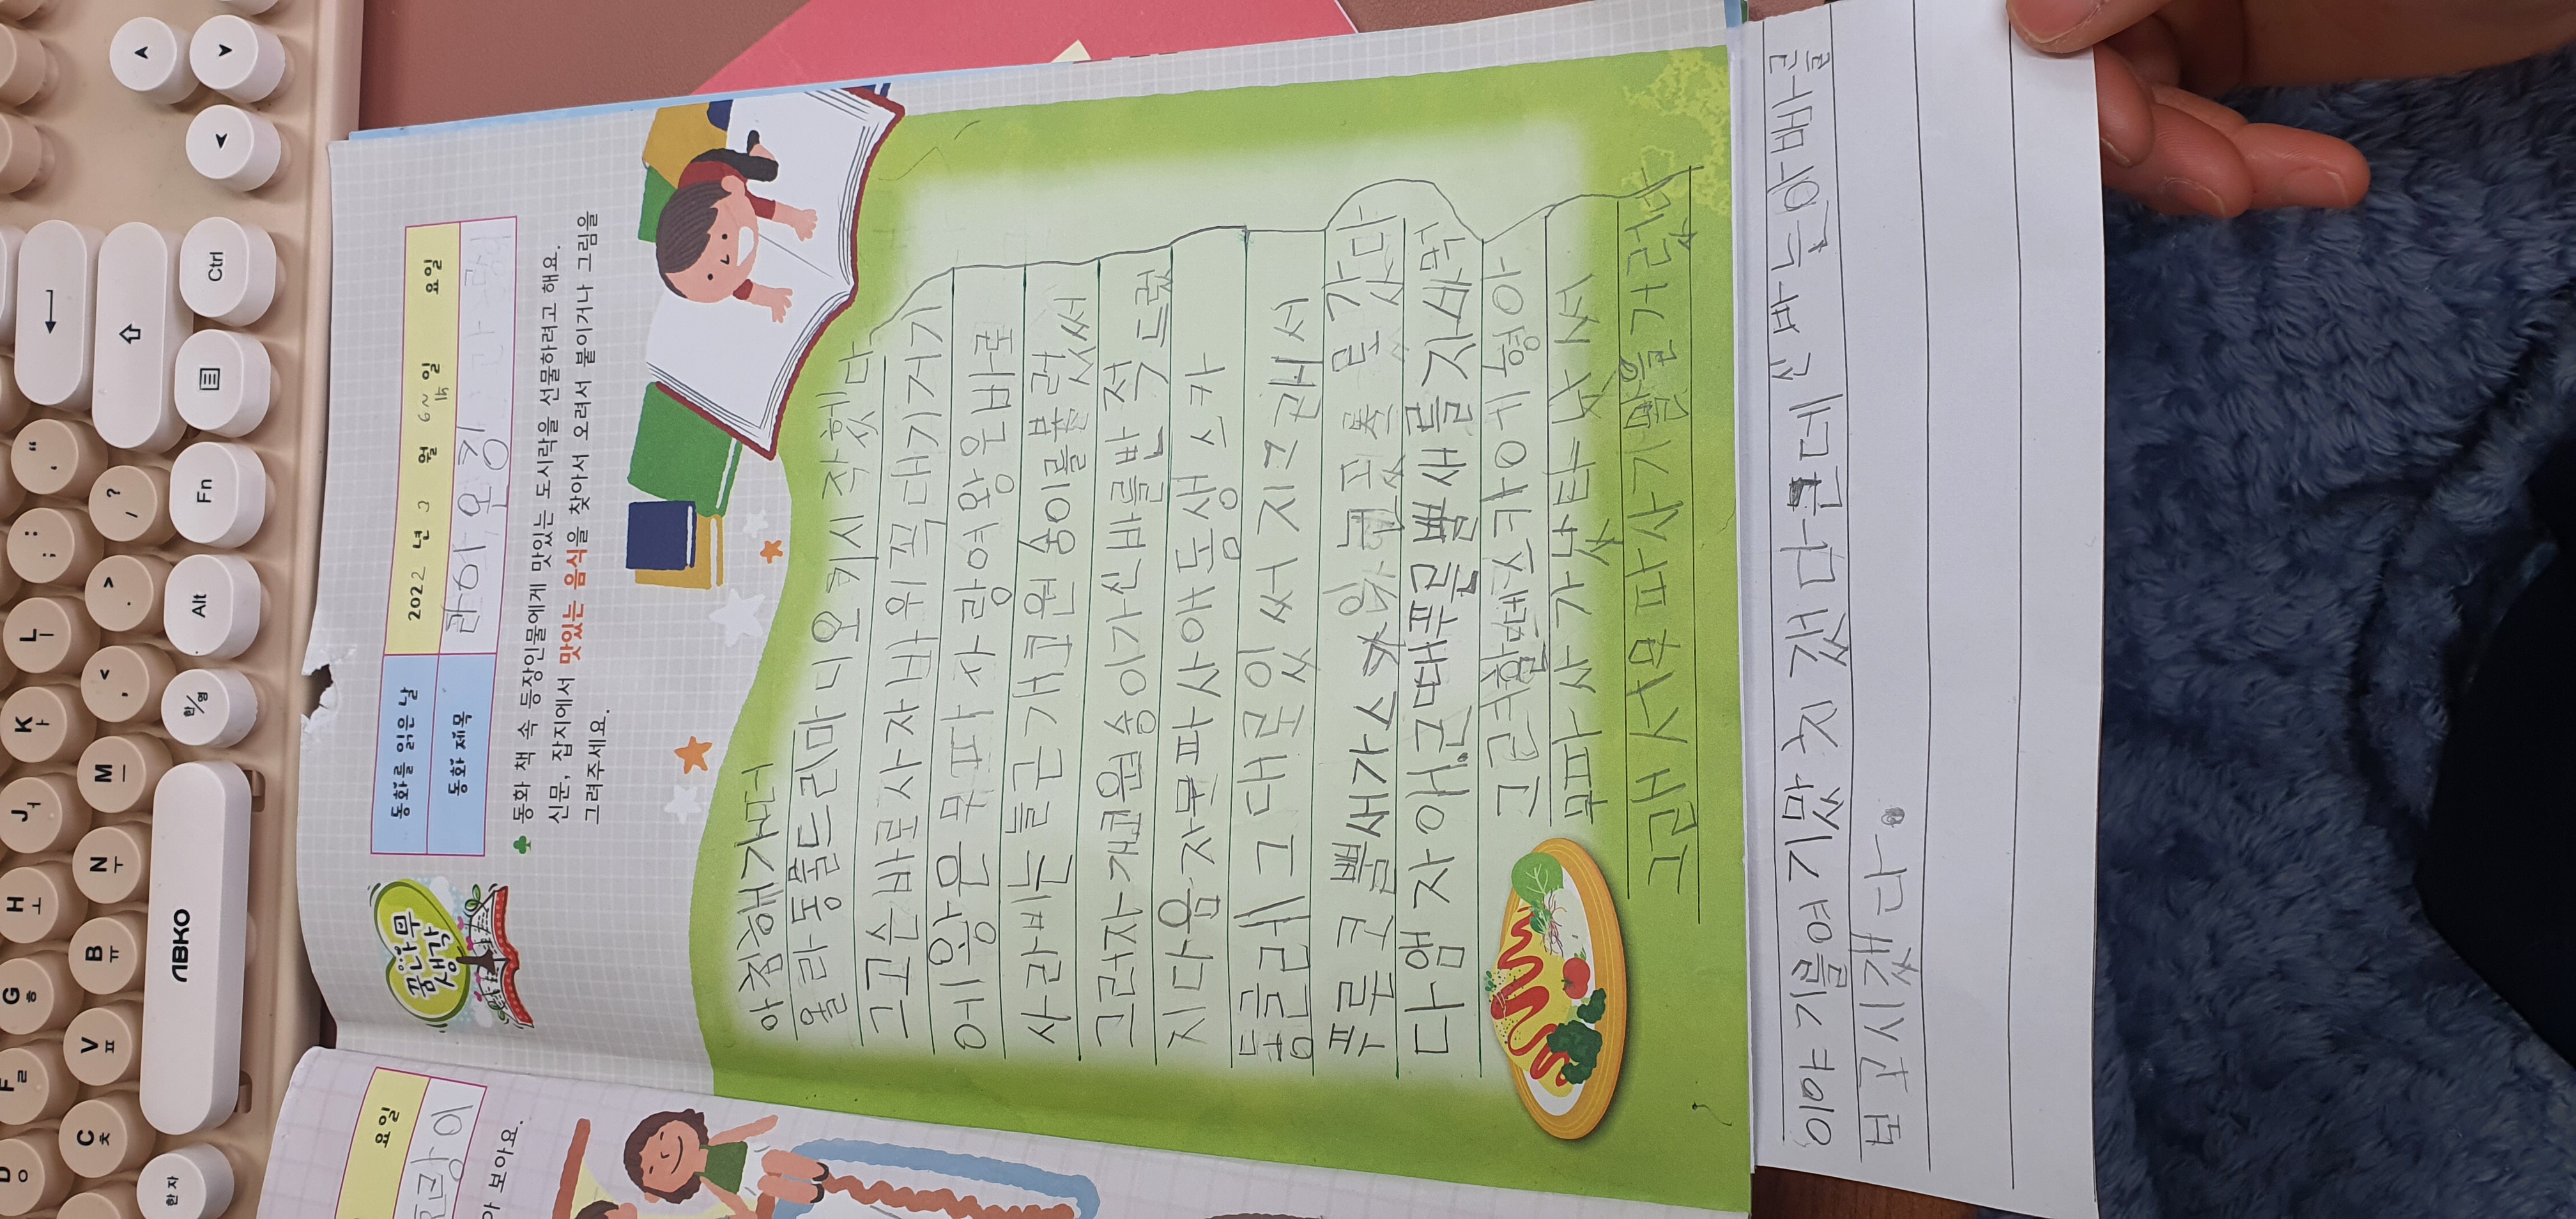 D ㅇ F ㄹ G ㅎ H ㅗ J ㅓ K ㅏ L ㅣ ; : ' "
C ㅊ V ㅍ B ㅠ N ㅜ M ㅡ , < . > / ?
한자 ABKO 한/영 Alt Fn Ctrl
요일
호랑이
아 보아요.
꿈나무
생각
동화를 읽은 날 2022 년 3 월 6~ 일 요일
동화 제목 라이온킹
동화 책 속 등장인물에게 맛있는 도시락을 선물하려고 해요.
신문, 잡지에서 맛있는 음식을 찾아서 오려서 붙이거나 그림을
그려주세요.
아침해가떠
올라동물드리마니오키시작헸다
그고슨바로사자바위꼭대기거기
에왕은무파자랑여왕은바로
사라비는늘근개코원숭이를불렀써
그러자개코원숭이가신바를반적드렸
지다음자문파사애동생스카
동글레그대로있써지그래서
푸른코뿔새가스카 갔다
다앰자애근때푸른뿔새를자바먹
그러할떼스카에형아
무파사가났타났써
그래서무파사기말을거렀다
이야기를여기맜치갰다근데신바는아빠를
보고시갰다.